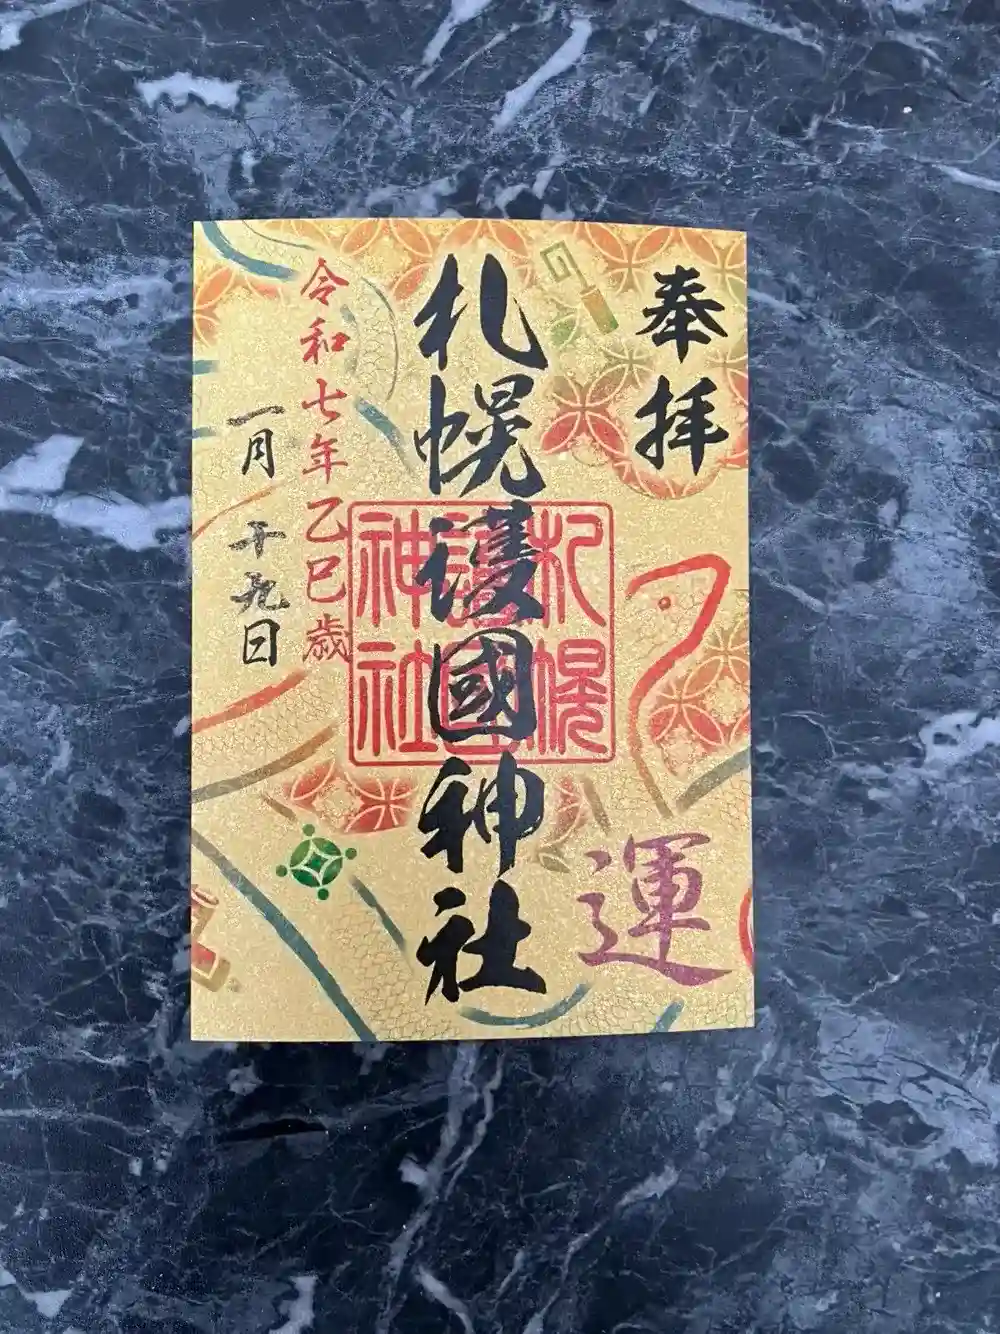 奉拝
運
札幌護國神社
札幌護國神社
令和七年乙巳歳
一月 十九日